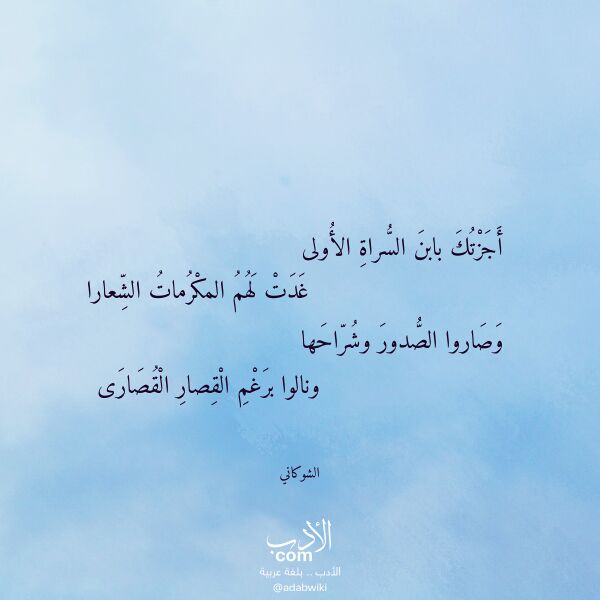 أَجَزْتُكَ بابنَ السُّراةِ الأُولى
غَدَتْ لَهُمُ المكْرُماتُ الشِّعارا
وَصَاروا الصُّدورَ وشُرّاحَها
ونالوا برَغْمِ الْقِصارِ الْقُصَارَى
الشوكاني
الأدب
com
الأدب .. بلغة عربية
@adabwiki